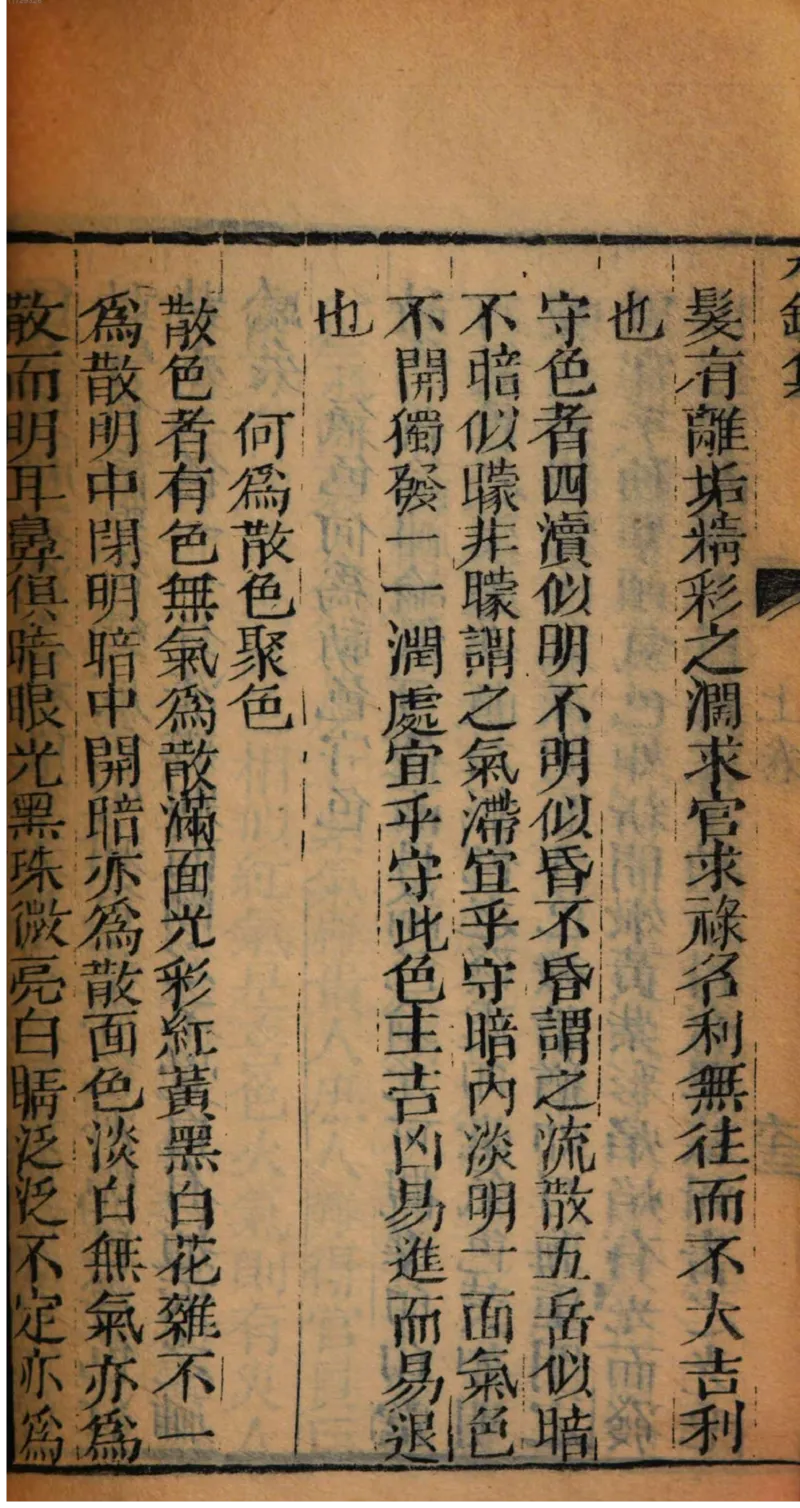 髮有離垢精彩之潤求官求祿名利無往而不大吉利
也
守色者四瀆似明不明似昏不昏謂之流散五岳似暗
不暗似矇非矇謂之氣滯宜乎守暗內淡明一面氣色
不開獨發一一潤處宜乎守此色主吉凶易進而易退
也
何爲散色聚色
散色者有色無氣爲散滿面光彩紅黃黑白花雜不一
爲散明中閉明暗中開暗亦爲散面色淡白無氣亦爲
散而明耳鼻俱暗眼光黑珠微亮白睛泛泛不定亦爲